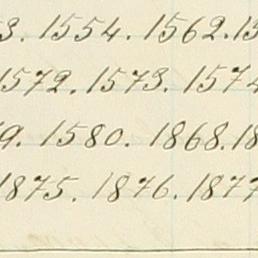 3. 1554. 1562. 15
1572. 1573. 1574
9. 1580. 1868. 18
1875. 1876. 1877